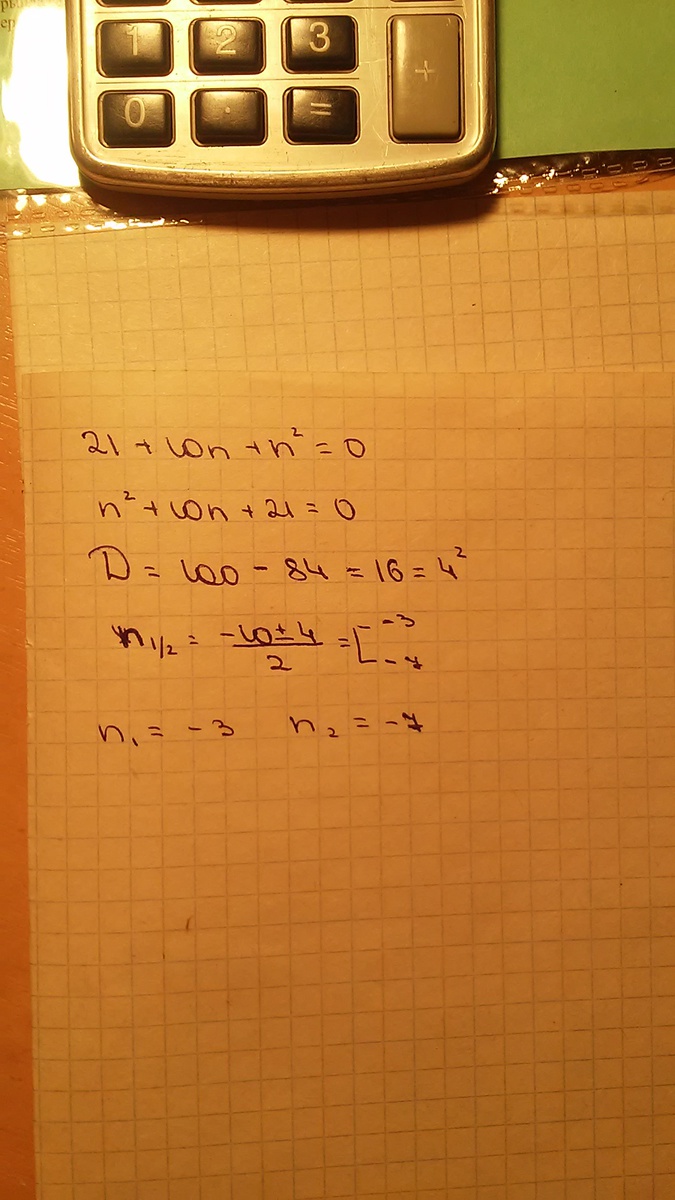 1 2 3 +
0 . =
21 + 10n + n² = 0
n² + 10n + 21 = 0
D = 100 - 84 = 16 = 4²
n₁/₂ = (-10 ± 4)/2 = [ -3
-7
n₁ = -3 n₂ = -7